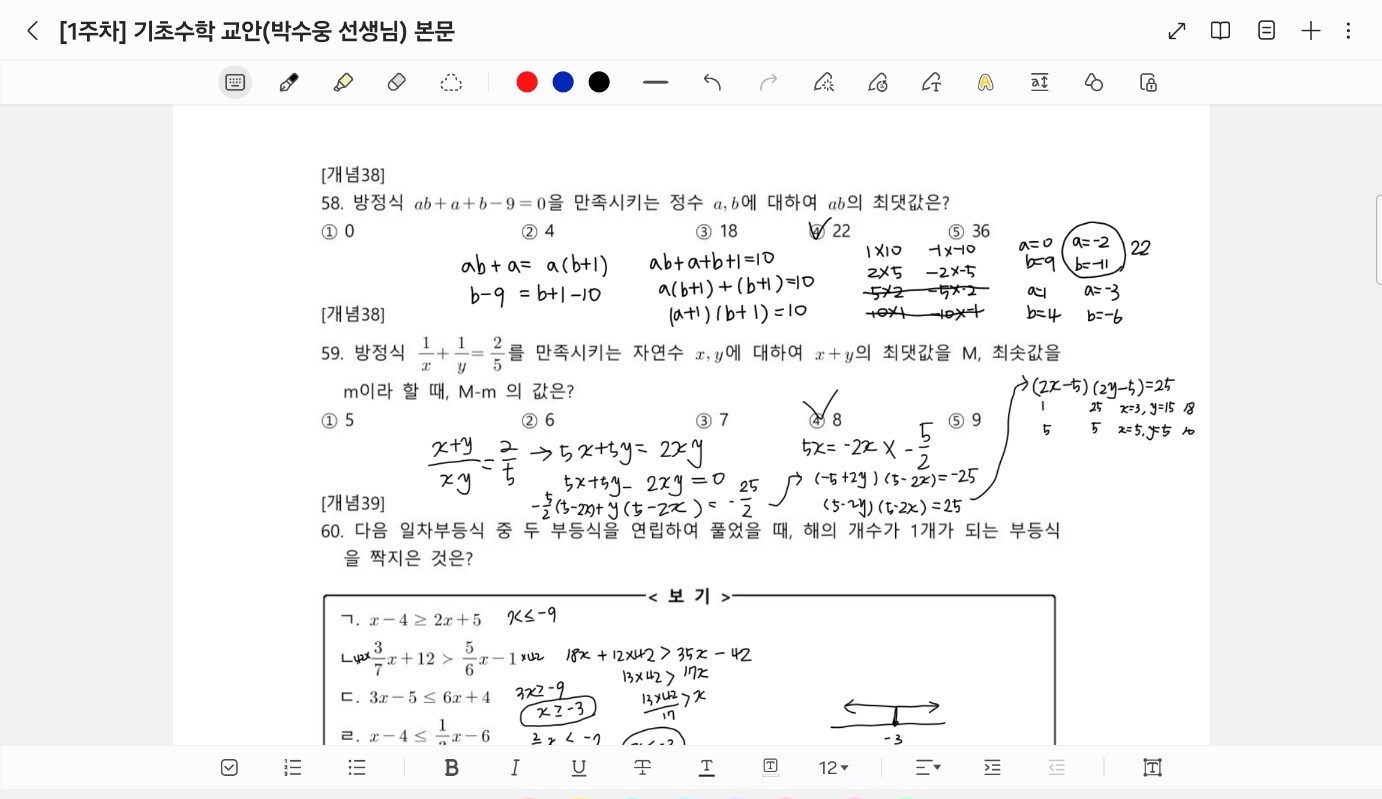 [1주차] 기초수학 교안(박수웅 선생님) 본문
[개념38]
58. 방정식 ab+a+b−9=0을 만족시키는 정수 a, b에 대하여 ab의 최댓값은?
① 0 ② 4 ③ 18 ④ 22 ⑤ 36
ab+a= a(b+1)
b-9 = b+1-10
ab+a+b+1=10
a(b+1)+(b+1)=10
(a+1)(b+1)=10
1×10 -1×-10
2×5 -2×-5
5×2 -5×-2
10×1 -10×-1
a=0 a=-2 22
b=9 b=-11
a=1 a=-3
b=4 b=-6
[개념38]
59. 방정식 1/x + 1/y = 2/5를 만족시키는 자연수 x, y에 대하여 x+y의 최댓값을 M, 최솟값을
m이라 할 때, M-m 의 값은?
① 5 ② 6 ③ 7 ④ 8 ⑤ 9
(x+y)/(xy) = 2/5 → 5x+5y= 2xy
5x+5y- 2xy=0
-5/2(5-2x)+y(5-2x)= -25/2
5x= -2x × -5/2
→ (-5+2y)(5-2x)=-25
(5-2y)(5-2x)=25
→ (2x-5)(2y-5)=25
1 25 x=3, y=15 18
5 5 x=5, y=5 10
[개념39]
60. 다음 일차부등식 중 두 부등식을 연립하여 풀었을 때, 해의 개수가 1개가 되는 부등식
을 짝지은 것은?
< 보 기 >
ㄱ. x−4 ≥ 2x+5 x≤-9
ㄴ. 42× 3/7x+12 > 5/6x−1 ×42 18x + 12×42 > 35x - 42
13×42 > 17x
13×42/17 > x
ㄷ. 3x−5 ≤ 6x+4 3x≥-9
x≥-3
-3
ㄹ. x−4 ≤ x−6
12